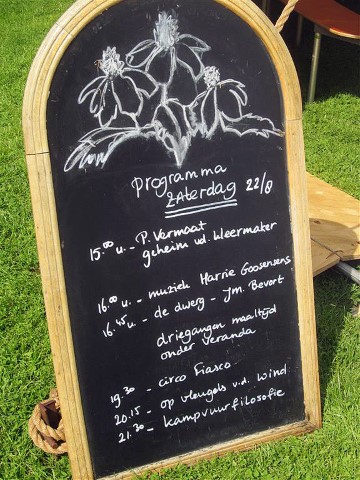 Programma
zaterdag 22/8
15.00 u. - P. Vermaat
geheim v.d. kleermaker
16.00 u. - muziek Harrie Goossensens
16.45 u. - de dwerg - Jm. Bevort
driegangen maaltijd
onder veranda
19.30 - circo Fiasco
20.15 - op vleugels v.d. wind
21.30 - kampvuurfilosofie